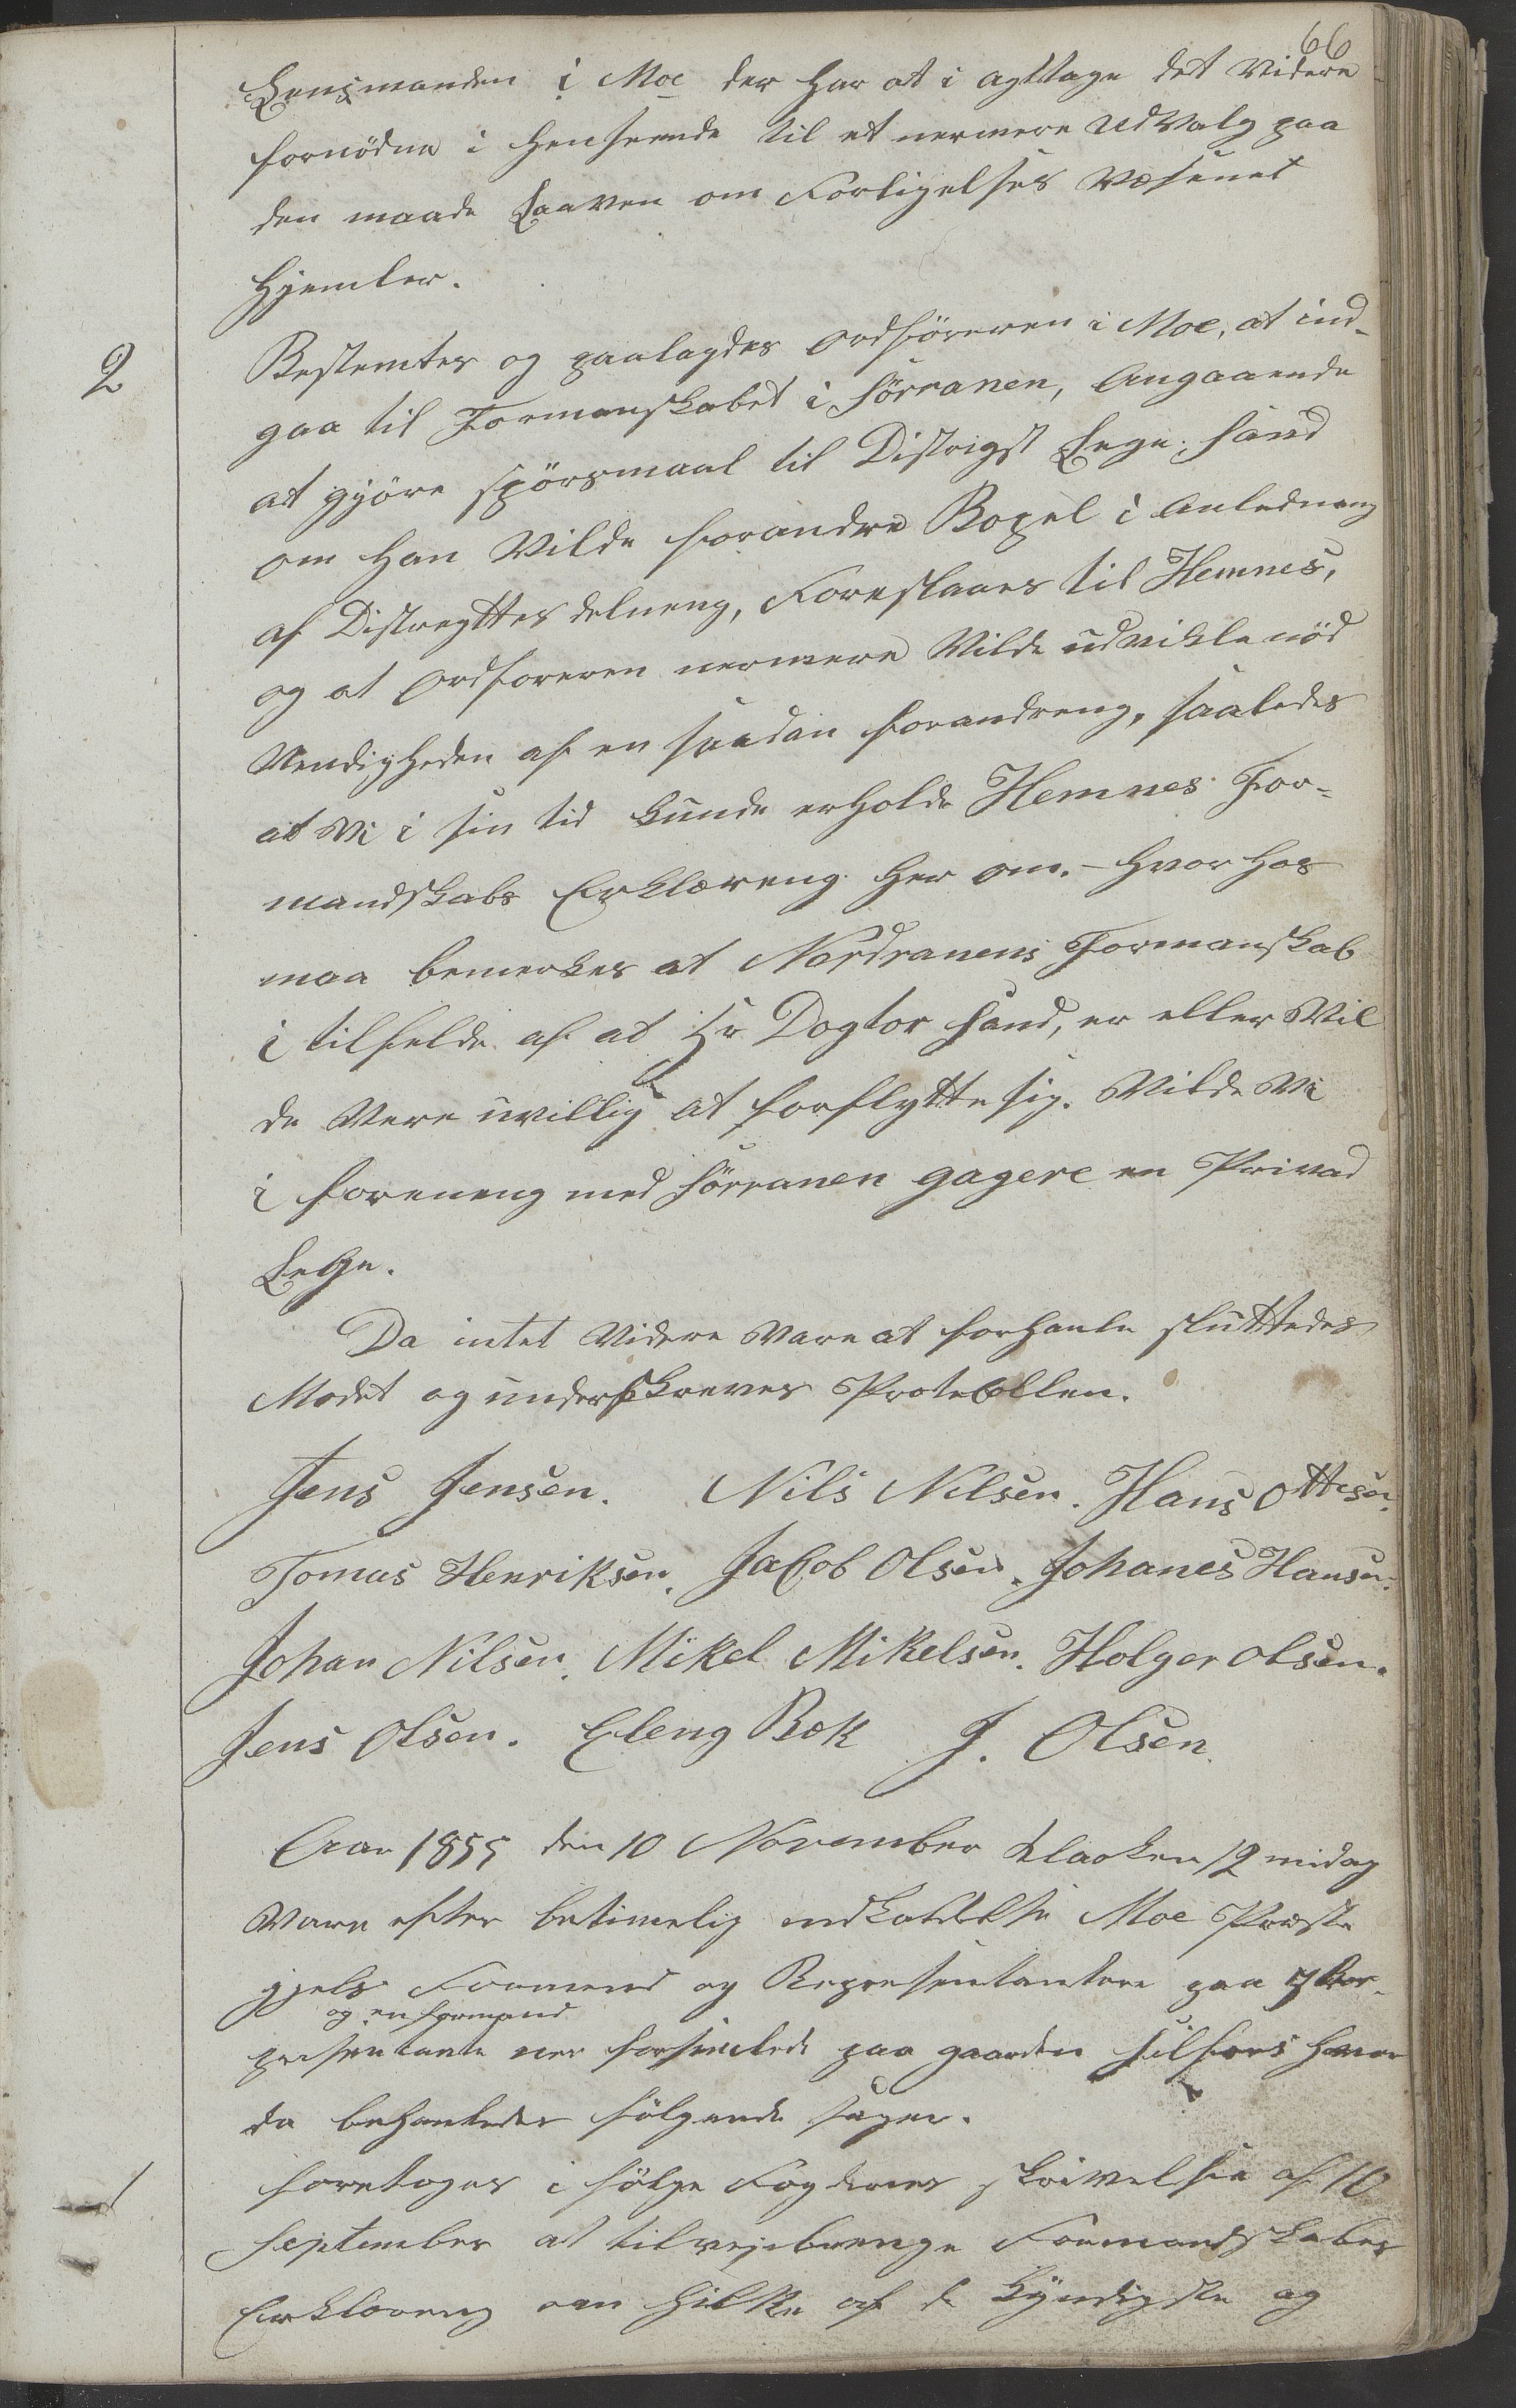 66
Lensmanden i Moe der har at i agttage det Videre
fornödne i henseende til et nermere UdValg paa
den maade Laaven om Forligelses Væsenet
Hjemler.
2
Bestemtes og paalagdes Ordföreren i Moe, at ind-
gaa til Formanskabet i Sörranen, Angaaende
at gjöre spörsmaal til Distrigst Lege. Sand
om han Vilde forandre Bopel i Anledneng
af Distregttes delneng, Foreslaaes til Hemnes,
og at Ordforeren nermere Vilde udvikle nöd
Vendigheden af en saadan forandreng, saaledes
at Vi i sin tid kunde erholde Hemnes For-
mandskabs Erklæreng her om. - hvor hos
maa bemerkes at Nordranens Formanskab
i tilfelde af at Hr Dogtor Sand, er eller Vil
de Vere uvillig at forflytte sig. Vilde Vi
i foreneng med Sörranen gagere en Privad
Lege.
Da intet Videre Vare at forhanle sluttedes
Modet og underskreves Protekollen.
Jens Jensen. Nils Nilsen. Hans Ottesen.
Tomas Henriksen. Jacob Olsen. Johanes Hansen.
Johan Nilsen. Mikel Mikelsen. Holger Olsen.
Jens Olsen. Eleng Bek J. Olsen.
Aar 1855 den 10 November Klaaken 12 midag
Vare efter betimelig indkaldelse Moe Præste
gjels Formend og Representantere paa 7 Rer-
og en formand
pesentante ner forsamlede paa gaarden Selfors hvor
da behanledes fölgende sager.
1
foretoges i fölge Fogdenes skrivelse af 10
September at tilvejebrenge Formandskabes
Erklæreng om hilke af de Kyndigste og